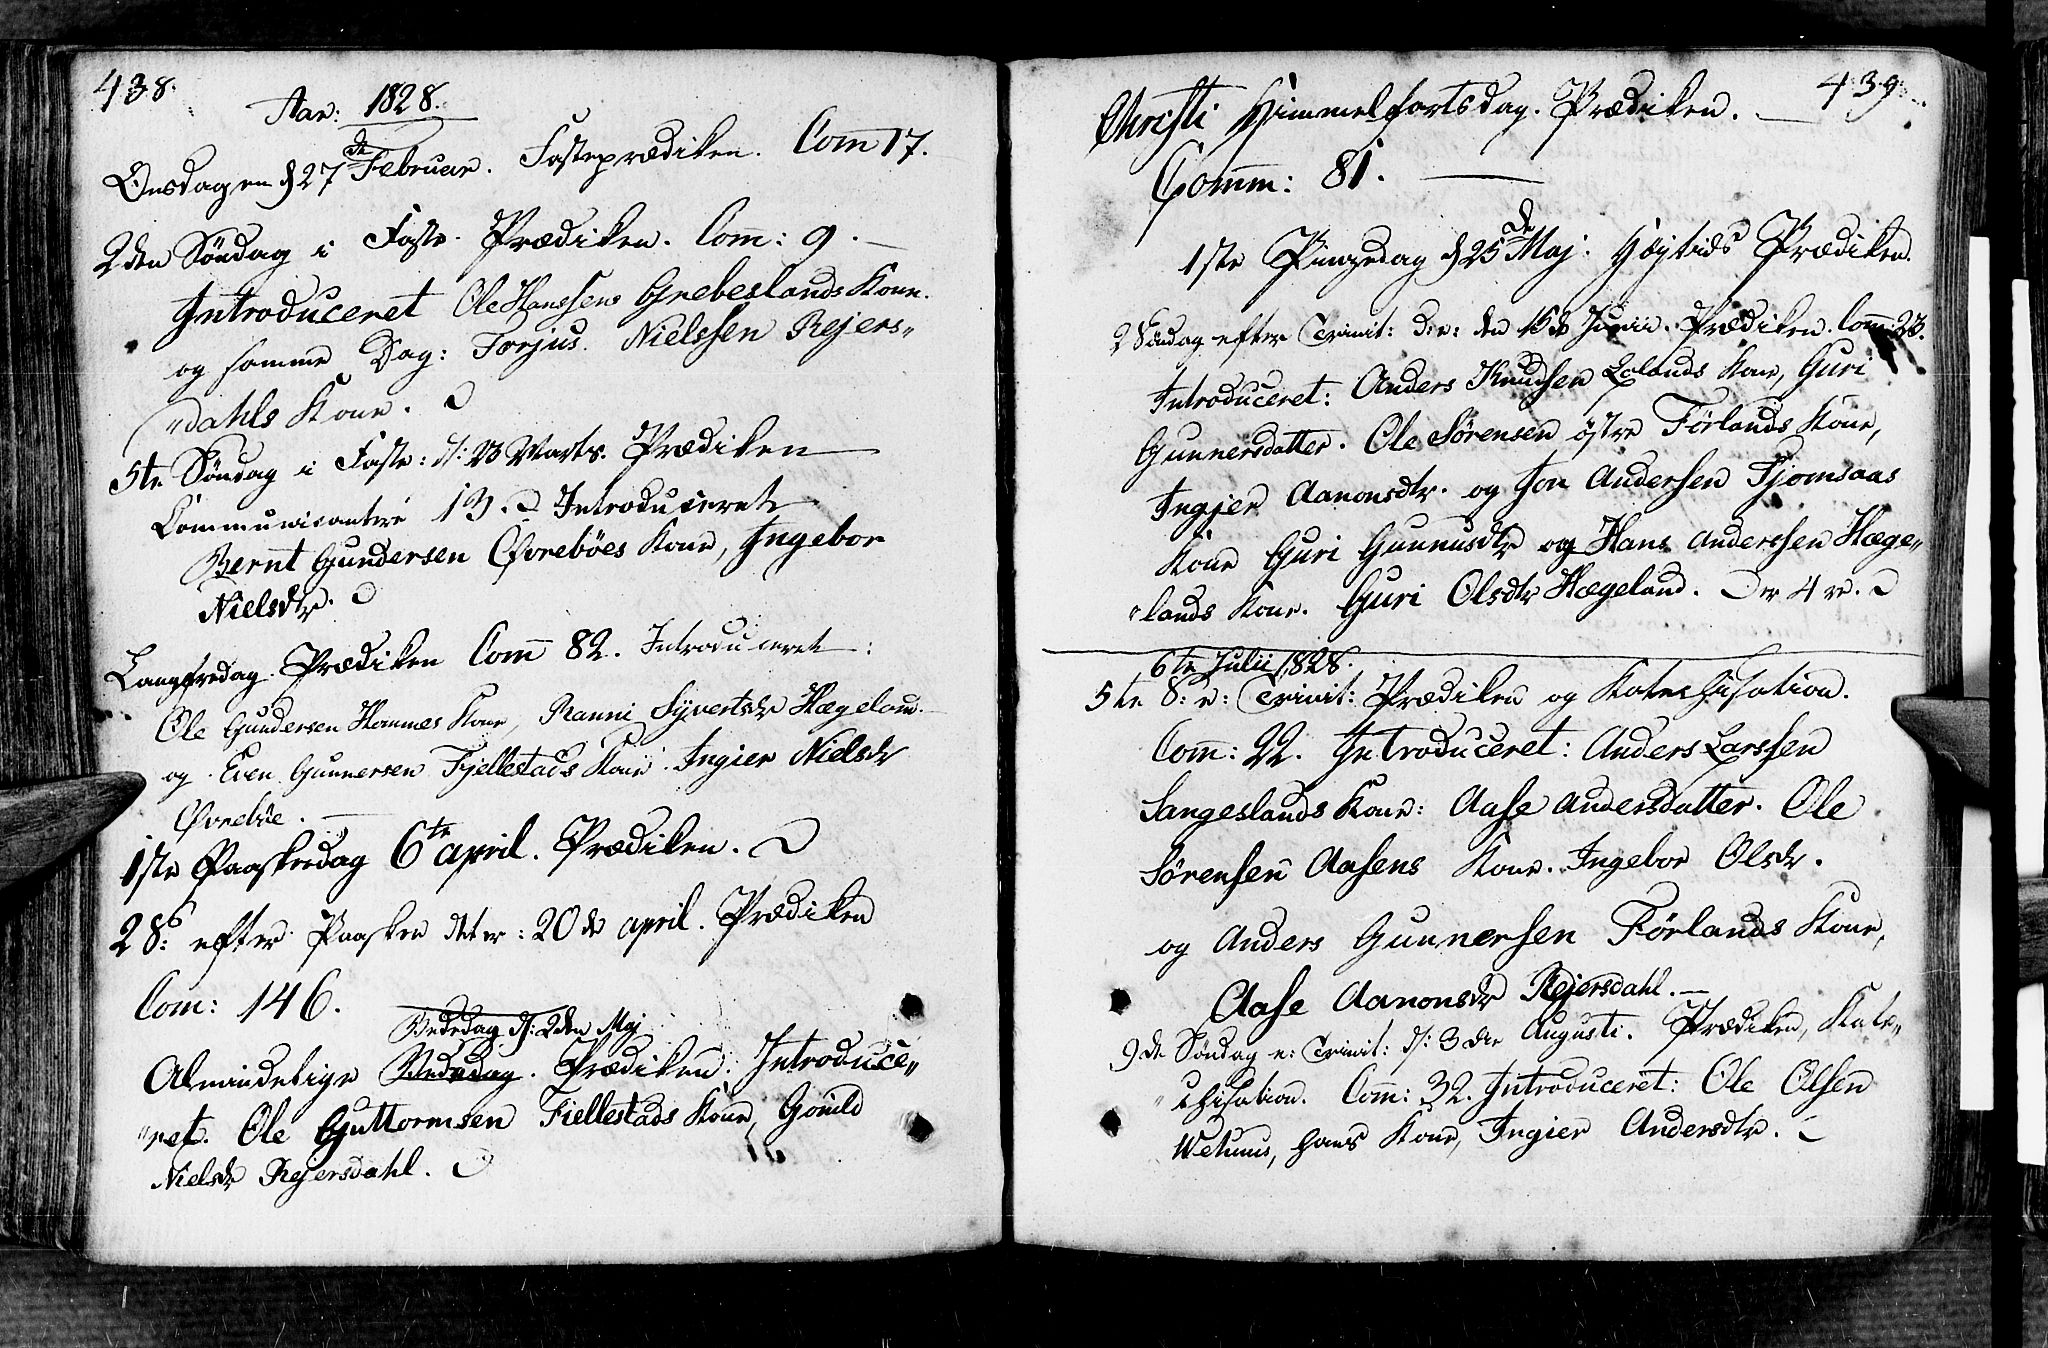 438.
Aar: 1828.
Onsdagen d 27de Februar. Fasteprædiken. Com 17.
2den Søndag i Faste. Prædiken. Com: 9.
Introduceret Ole Hanssens Grebeslands Kone.
og samme Dag: Torjus Nielssen Rejers„
„dahls Kone.
5te Søndag i Faste: d: 23 Marts. Prædiken
Communicantere 13. Introduceret
Bernt Gundersen Øvrebøes Kone, Ingebor
Nielsdr.
Langfredag. Prædiken Com 82. Introduceret:
Ole Gundersen Hommes Kone, Ranni Syvertsdr Hægelam.
og Even Gunnersen Fjellestads Kone. Ingier Nielsdr
Øvrebøe.
1ste Paaskedag 6te april. Prædiken.
2 S: efter Paaske det er: 20de april. Prædiken
Com: 146.
Bededag d: 2den Maj
Almindelige Bededag. Prædiken. Introduce„
„ret. Ole Guttormsen Fiellestads Kone, Gonild
Nielsdr Rejersdahl.
439.
Christi Himmelfartsdag. Prædiken.
Comm: 81.
1ste Pinzedag d 25de Maj: Høgtids Prædiken.
2 Søndag efter Trinit: d:e: den 15de Junii. Prædiken. Com: 23.
Introduceret: Anders Knudsen Lolands Kone, Guri
Gunnersdatter. Ole Sørensen østre Førlands Kone,
Ingjer Aanonsdtr. og Jon Andersen Fjomsaas
Kone Guri Gunnusdtr og Hans Anderssen Hæge„
„lands Kone. Guri Olsdtr Hægeland. Der 4 re.
6te Julii 1828.
5te S: e: Trinit: Prædiken og Katechisation.
Com: 22. Introduceret: Anders Larssen
Sangeslands Kone: Aase Andersdatter. Ole
Sørensen Aasens Kone. Ingebor Olsdr.
og Anders Gunnersen Førlands Kone,
Aase Aanonsdr Rejersdahl.
9de Søndag e: Trinit: d: 3die Augusti. Prædiken, Kate„
„chisation. Com: 32. Introduceret: Ole Olsen
Wehuus, hans Kone, Ingier Andersdtr.